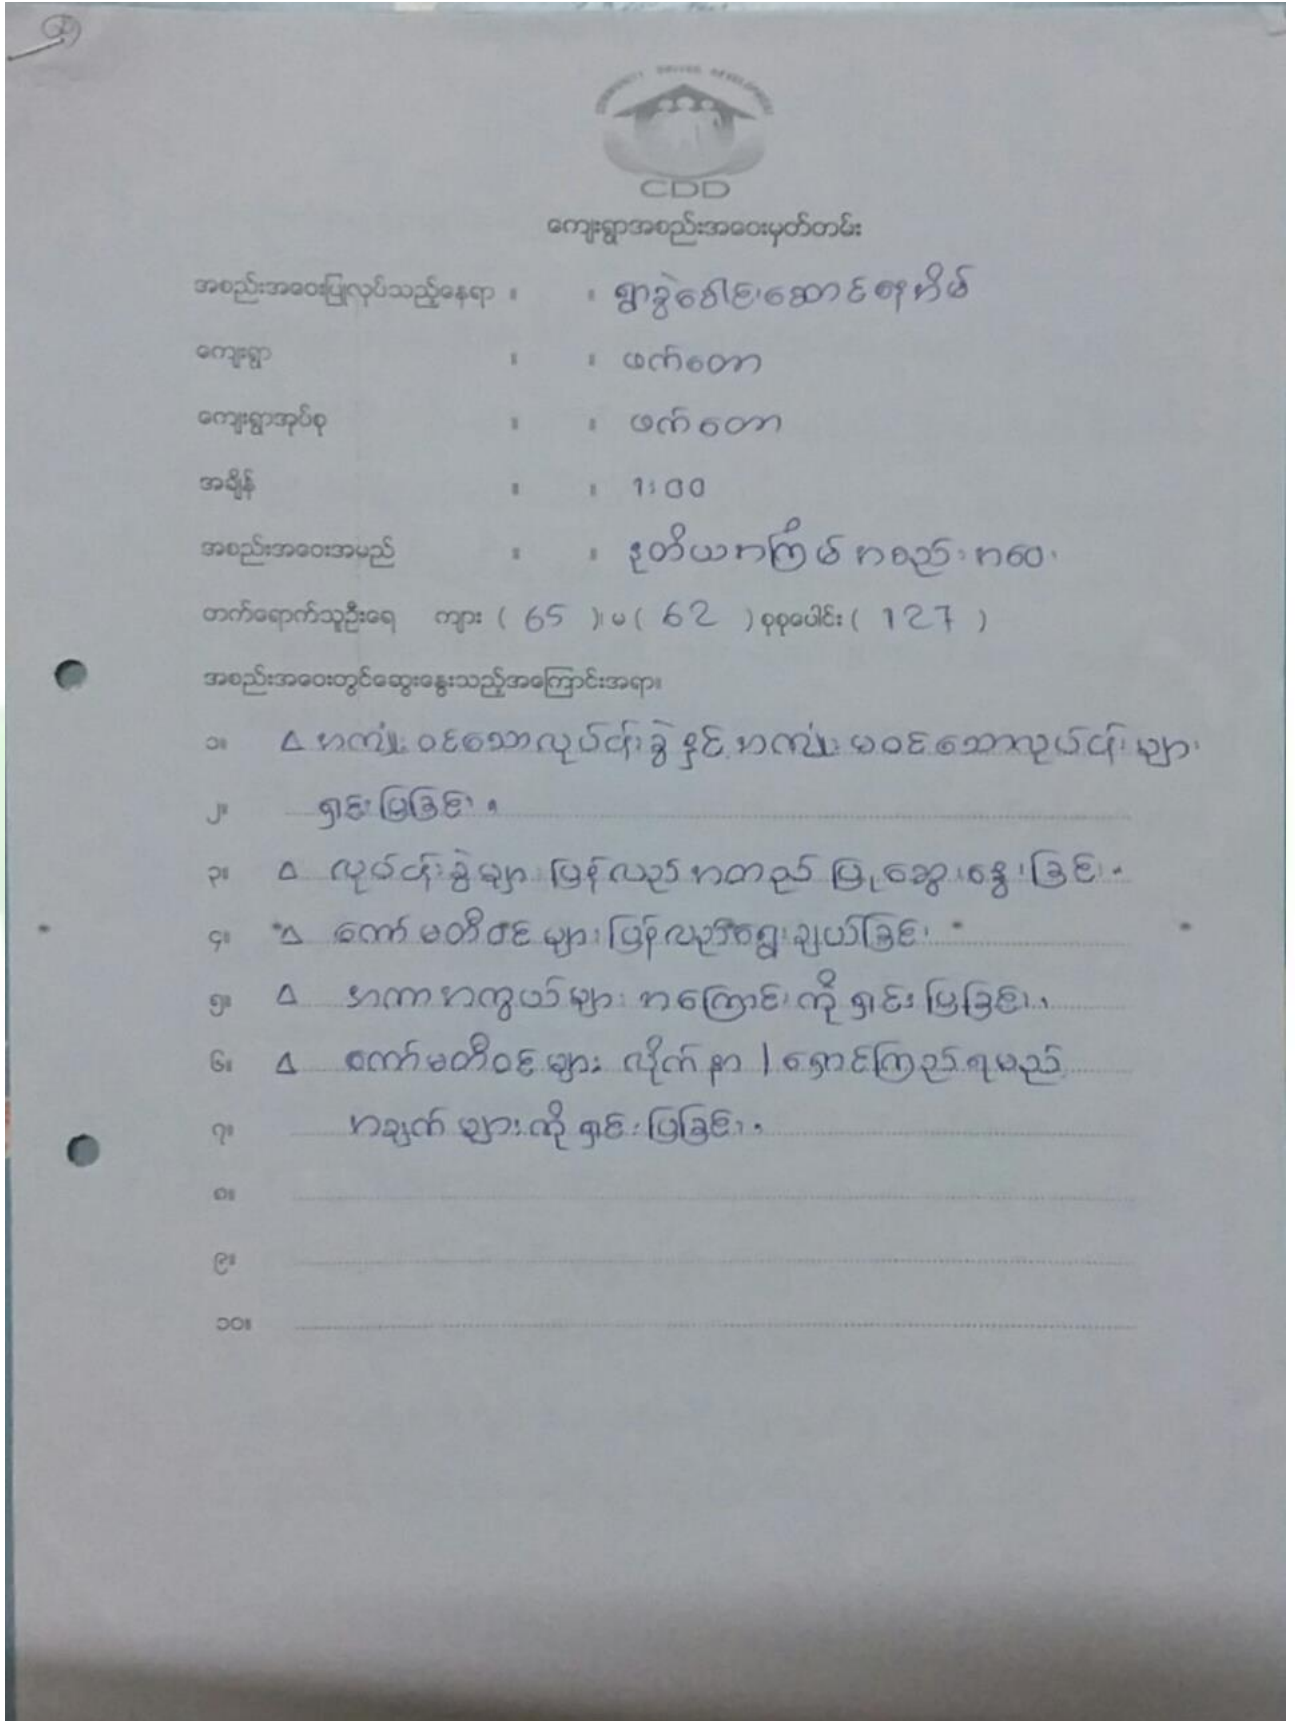 COMMUNITY DRIVEN DEVELOPMENT
CDD
ကျေးရွာအစည်းအဝေးမှတ်တမ်း
အစည်းအဝေးပြုလုပ်သည့်နေရာ ။ ။ ရွာခွဲခေါင်းဆောင်နေအိမ်
ကျေးရွာ ။ ။ ဖက်တော
ကျေးရွာအုပ်စု ။ ။ ဖက်တော
အချိန် ။ ။ 1:00
အစည်းအဝေးအမည် ။ ။ ဒုတိယအကြိမ် အစည်းအဝေး
တက်ရောက်သူဦးရေ ကျား ( 65 )၊ မ ( 62 ) စုစုပေါင်း ( 127 )
အစည်းအဝေးတွင်ဆွေးနွေးသည့်အကြောင်းအရာ။
၁။ Δ အကျုံးဝင်သောလုပ်ငန်းခွဲ နှင့် အကျုံးမဝင်သောလုပ်ငန်းများ
၂။ ရှင်းပြခြင်း။
၃။ Δ လုပ်ငန်းခွဲများ ပြန်လည်အတည်ပြုဆွေးနွေးခြင်း။
၄။ Δ ကော်မတီဝင်များ ပြန်လည်ရွေးချယ်ခြင်း
၅။ Δ အကာအကွယ်များ အကြောင်းကို ရှင်းပြခြင်း။
၆။ Δ ကော်မတီဝင်များ လိုက်နာ / ရှောင်ကြည်ရမည့်
၇။ အချက်များကို ရှင်းပြခြင်း။
၈။
၉။
၁၀။